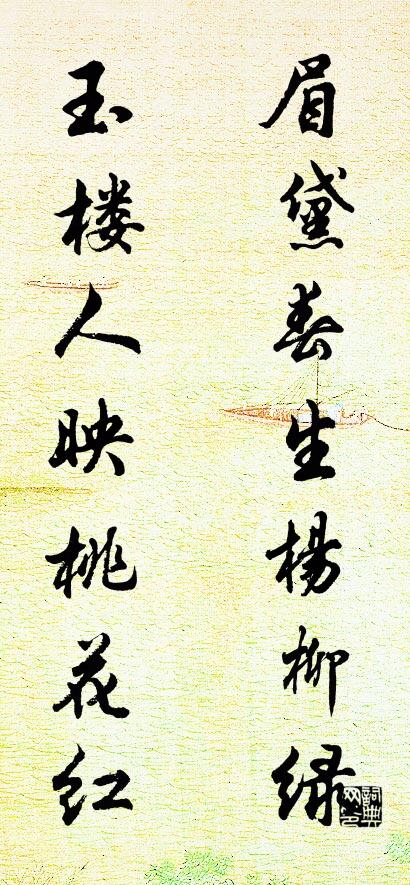 眉黛春生杨柳绿
玉楼人映桃花红
词典网印